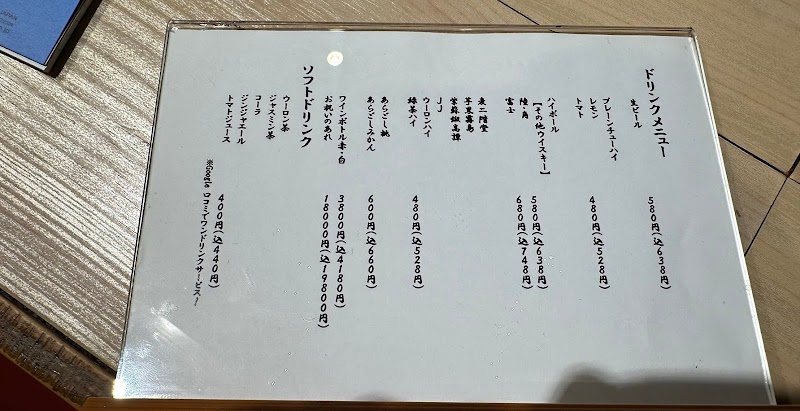 ドリンクメニュー
生ビール 580円(込638円)
プレーンチューハイ
レモン
トマト 480円(込528円)
ハイボール
【その他ウイスキー】
陸・角 580円(込638円)
富士 680円(込748円)
麦二階堂
芋黒霧島
紫蘇鍛高譚
JJ
ウーロンハイ
緑茶ハイ 480円(込528円)
あらごし桃
あらごしみかん 600円(込660円)
ワインボトル赤・白 3800円(込4180円)
お祝いのあれ 18000円(込19800円)
ソフトドリンク
ウーロン茶
ジャスミン茶
コーラ
ジンジャエール
トマトジュース 400円(込440円)
※Google 口コミでワンドリンクサービス!
JAPAN